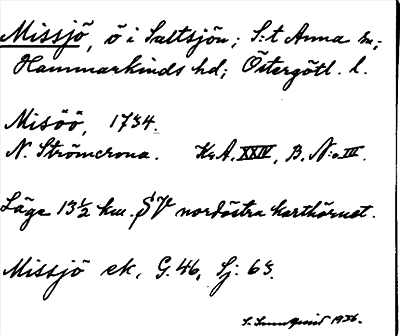 Missjö, ö i Saltsjön; S:t Anna sn;
Hammarkinds hd; Östergötl. l.
Misöö, 1734.
N. Strömcrona. Kr.A. XXIV, B. N:o III.
Läge 13½ km. SV nordöstra karthörnet.
Missjö ek. G. 46, Sj: 63.
1936.